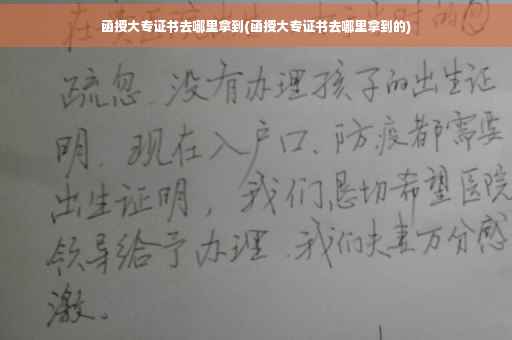 函授大专证书去哪里拿到(函授大专证书去哪里拿到的)
疏忽、没有办理孩子的出生证
明、现在入户口、防疫都需要
出生证明，我们恳切希望医院
领导给予办理、我们夫妻万分感
激。